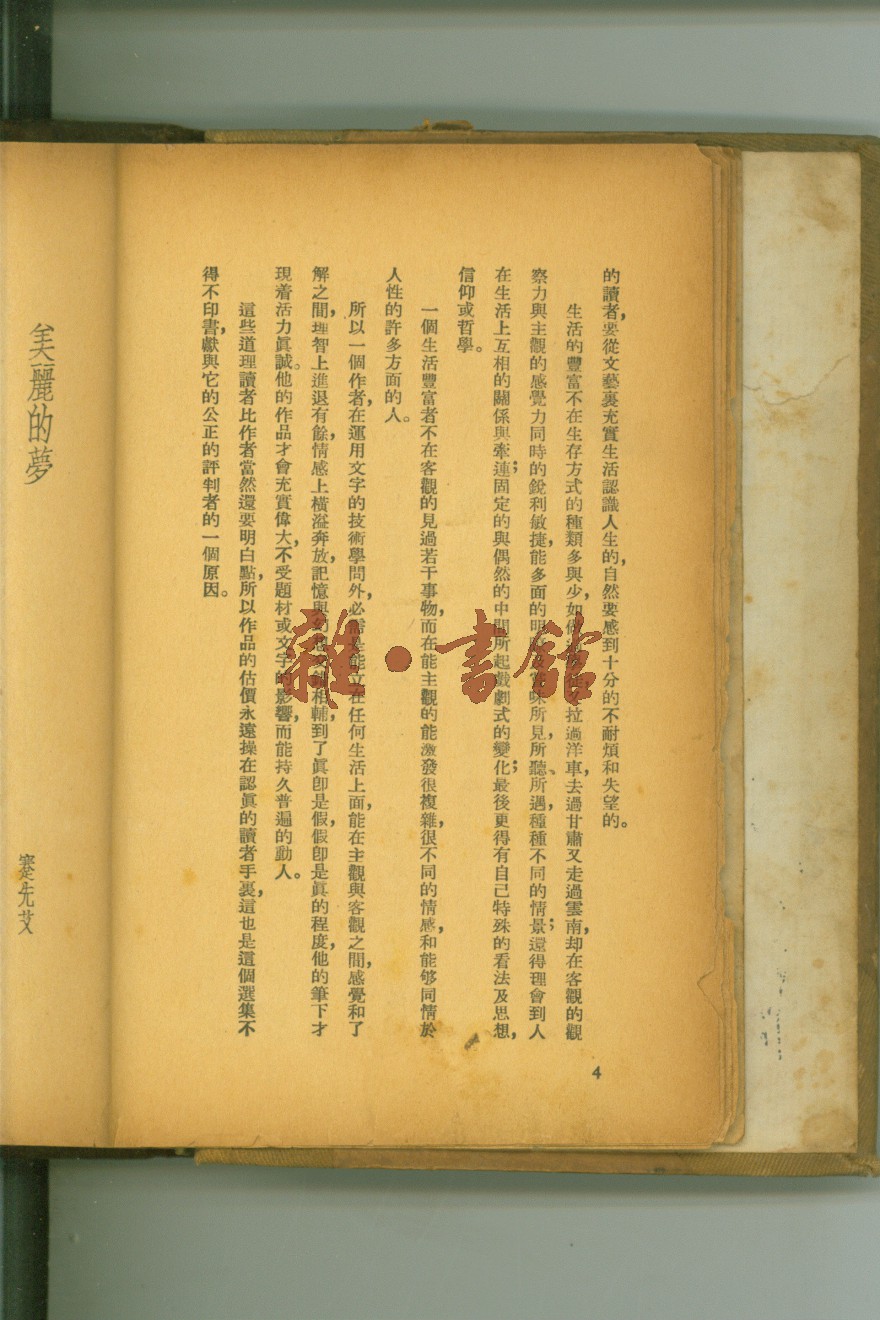 的讀者，要從文藝裏充實生活認識人生的，自然要感到十分的不耐煩和失望的。
生活的豐富不在生存方式的種類多與少，如做過 拉過洋車，去過甘肅又走過雲南，却在客觀的觀
察力與主觀的感覺力同時的銳利敏捷，能多面的明 味所見，所聽，所遇，種種不同的情景；還得理會到人
在生活上互相的關係與牽連；固定的與偶然的中間所起戲劇式的變化；最後更得有自己特殊的看法及思想，
信仰或哲學。
一個生活豐富者不在客觀的見過若干事物，而在能主觀的能激發很複雜，很不同的情感，和能够同情於
人性的許多方面的人。
所以一個作者，在運用文字的技術學問外，必需是能立在任何生活上面，能在主觀與客觀之間，感覺和了
解之間，理智上進退有餘，情感上橫溢奔放，記憶與幻想交錯相輔，到了眞卽是假，假卽是眞的程度，他的筆下才
現着活力眞誠。他的作品才會充實偉大，不受題材或文字的影響，而能持久普遍的動人。
這些道理讀者比作者當然還要明白點，所以作品的估價永遠操在認眞的讀者手裏，這也是這個選集不
得不印書，獻與它的公正的評判者的一個原因。
4
雜·書館
美麗的夢
蹇先艾